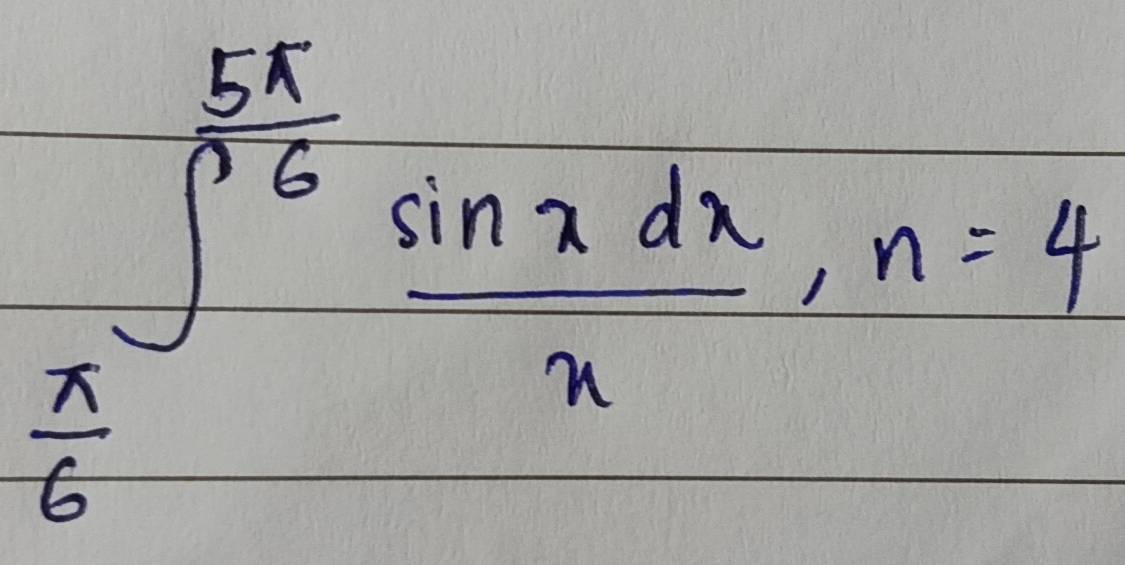 ∫_{π/6}^{5π/6} (sin x dx)/x, n = 4